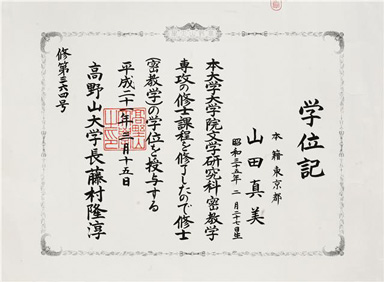 学位記
本籍 東京都
山田真美
昭和三十五年 二月二十七日生
本大学大学院文学研究科密教学
専攻の修士課程を修了したので修士
(密教学)の学位を授与する
平成二十一年三月十五日
高野山大学長藤村隆淳
修第三六四号